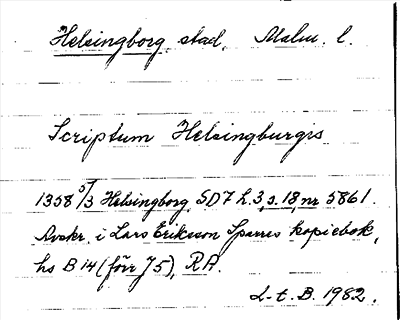 Helsingborg stad, Malm. l.
Scriptum Helsingburgis
1358 5/3 Helsingborg SD7 h.3, s.18, nr 5861.
Avskr. i Lars Eriksson Sparres kopiebok,
hs B 14 (förr J 5), RA.
L-t. B. 1982.